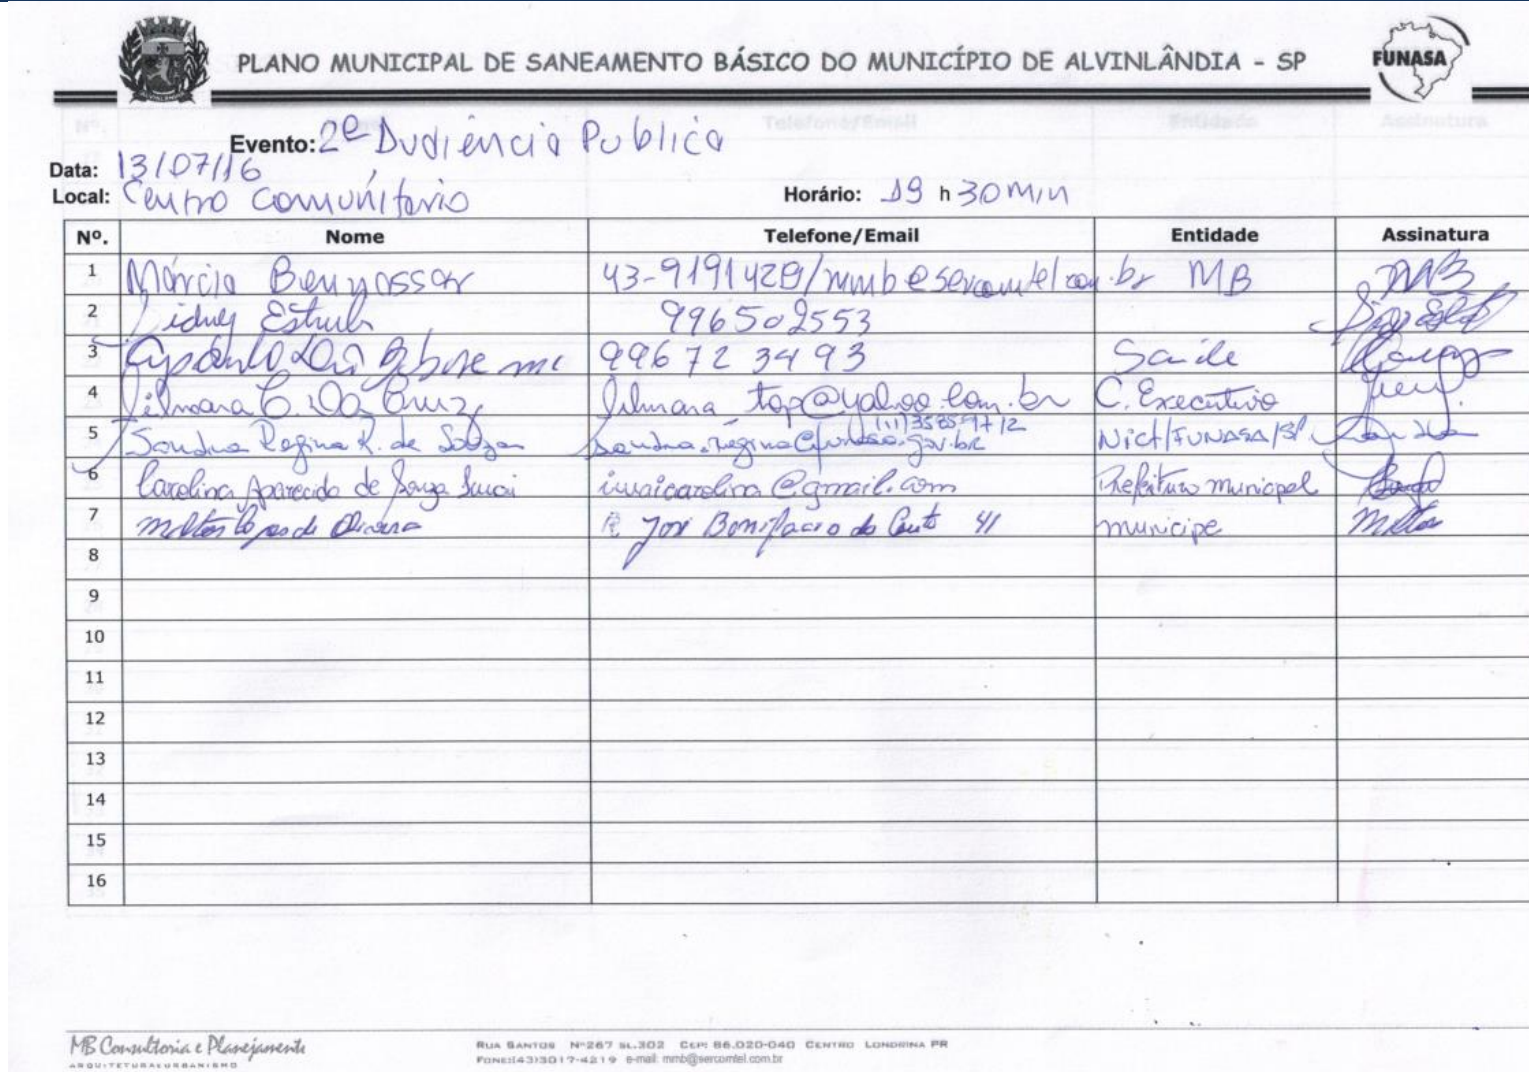 PLANO MUNICIPAL DE SANEAMENTO BÁSICO DO MUNICÍPIO DE ALVINLÂNDIA - SP
FUNASA
Evento: 2ª Audiência Publica
Data: 13/07/16
Local: Centro Comunitario Horário: 19 h 30 min
Nº. Nome Telefone/Email Entidade Assinatura
1 Márcia Bounassar 43-9191429/mmb@sercomtel.com.br MB MB
2 Sidney 996502553
3 996723493 Saúde
4 Silmara C. Da Cruz silmara_top@yahoo.com.br C. Executivo
5 Sandra Regina R. de Souza sandra.regina@funasa.gov.br (11)3585-9712 Nict/FUNASA/SP Sandra
6 Carolina Aparecida de Souza Iwai iwaicarolina@gmail.com Prefeitura Municipal
7 Milton Lopes de Oliveira R. José Bonifacio do Couto 41 municipe Milton
8
9
10
11
12
13
14
15
16
MB Consultoria e Planejamento
ARQUITETURA E URBANISMO
RUA SANTOS Nº267 SL.302 CEP: 86.020-040 CENTRO LONDRINA PR
FONE:(43)3017-4219 e-mail: mmb@sercomtel.com.br